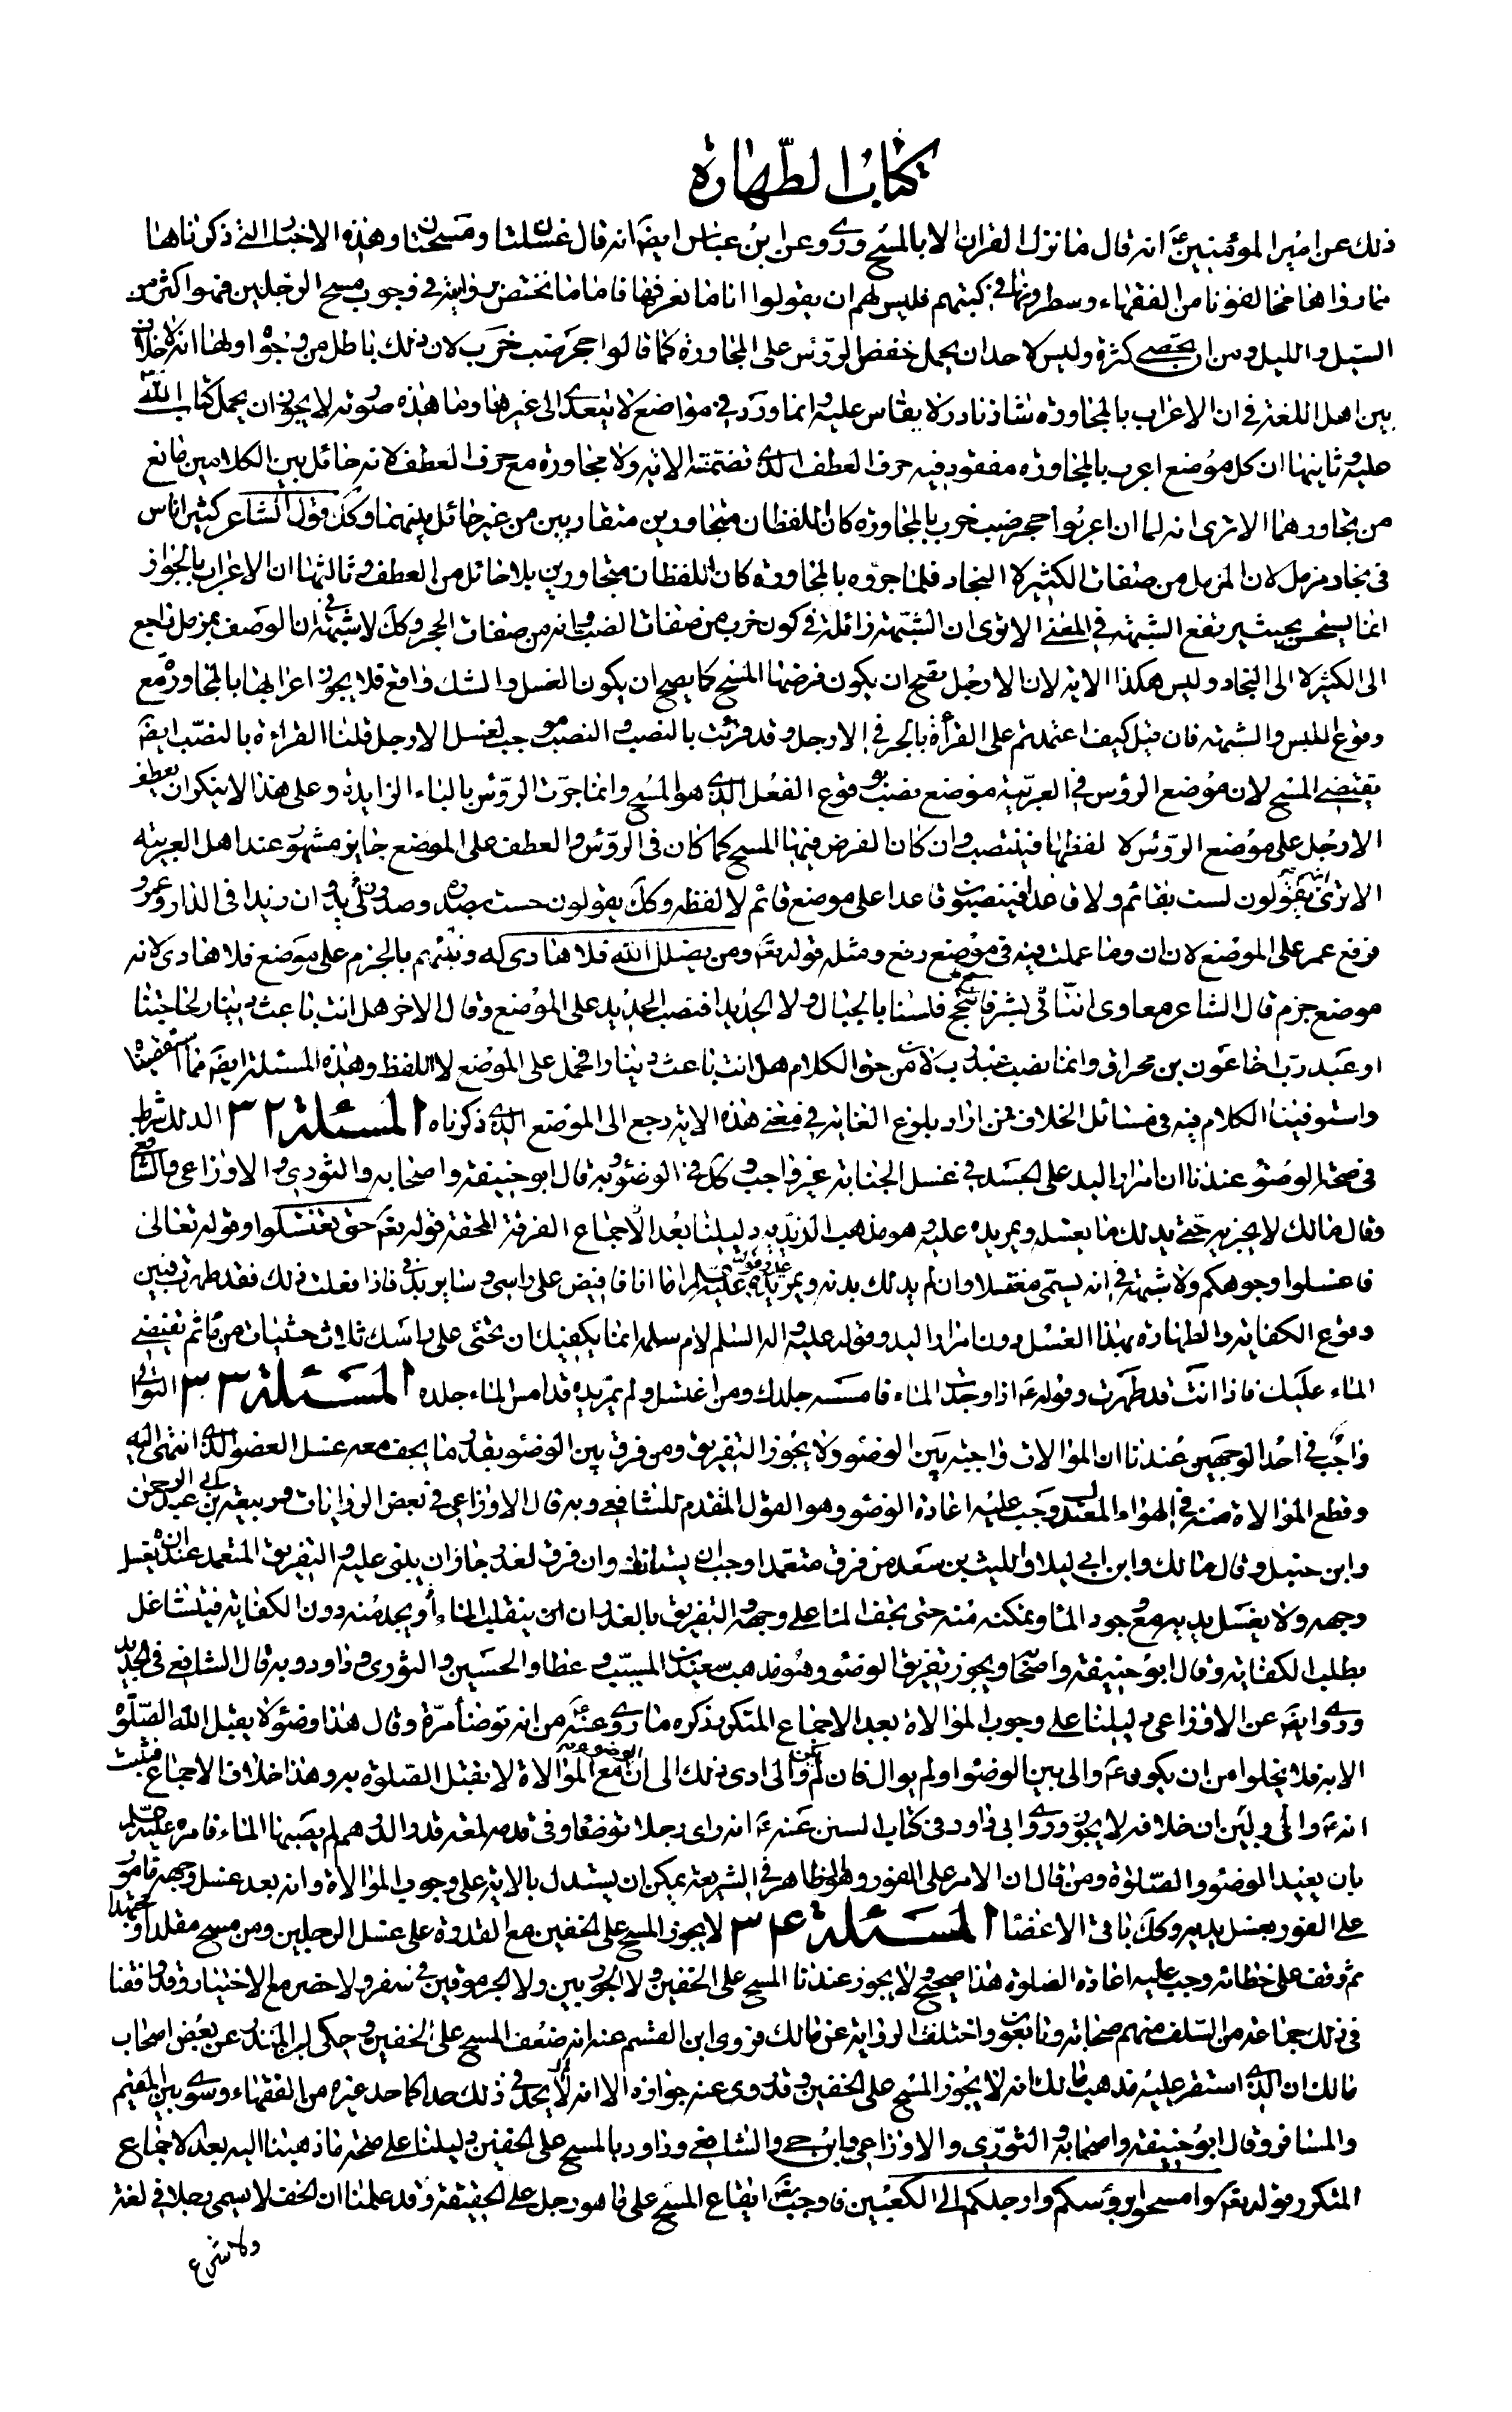 كتاب الطهارة
ذلك عن امير المؤمنين ع انه قال ما نزل القران الا بالمسح وروى عن ابن عباس ايضا انه قال غسلتان ومسحتان وهذه الاخبار التي ذكرناها
مما رواها مخالفونا من الفقهاء وسطروها في كتبهم فليس لهم ان يقولوا اننا ما نعرفها فاما ما نختص بروايته في وجوب مسح الرجلين فهو اكثر من
السيل والليل ومن ان يحصى كثرة وليس لاحد ان يحمل خفض الرؤس على المجاورة كما قالوا حجر ضب خرب لان ذلك باطل من وجوه اولها انه لا خلاف
بين اهل اللغة في ان الاعراب بالمجاورة شاذ نادر لا يقاس عليه وانما ورد في مواضع لا يتعدى الى غيرها وما هذه صورته لا يجوز ان يحمل كتاب الله
عليه وثانيها ان كل موضع اعرب بالمجاورة مفقود فيه حرف العطف الذي تضمنته الاية ولا مجاورة مع حرف العطف لانه حائل بين الكلامين مانع
من تجاورهما الا ترى انه لما ان اعربوا حجر ضب خرب بالمجاورة كان اللفظان متجاورين متقاربين من غير حائل بينهما وكك قول الشاعر كبير اناس
في بجاد مزمل لان المزمل من صفات الكبير لا البجاد فلما جروه بالمجاورة كان اللفظان متجاورين بلا حائل من العطف وثالثها ان الاعراب بالجوار
انما يستحسن بحيث يرتفع الشبهة في المعنى الا ترى ان الشبهة زائلة في كون خرب من صفات الضب وانه من صفات الحجر وكك لا شبهة في ان الوصف بمزمل راجع
الى الكبير لا الى البجاد وليس هكذا الاية لان الارجل يصح ان يكون فرضها المسح كما يصح ان يكون الغسل والشك واقع فلا يجوز اعرابها بالمجاورة مع
وقوع اللبس والشبهة فان قيل كيف اعتمدتم على القراءة بالجر في الارجل وقد قرئت بالنصب والنصب موجب لغسل الارجل قلنا القراءة بالنصب ايضا
يقتضي المسح لان موضع الرؤس في العربية موضع نصب بوقوع الفعل الذي هو المسح وانما جرت الرؤس بالباء الزايدة وعلى هذا لا ينكر ان يعطف
الارجل على موضع الرؤس لا لفظها فينتصب وان كان الفرض فيها المسح كما كان في الرؤس والعطف على الموضع جايز مشهور عند اهل العربية
الا ترى انهم يقولون لست بقائم ولا قاعدا فينصبون قاعدا على موضع قائم لا لفظه وكك يقولون خشنت بصدره وصدر زيد وان زيدا في الدار وعمرو
فرفع عمر على الموضع لان ان وما عملت فيه في موضع رفع ومثله قوله تع ومن يضلل الله فلا هادي له ويذرهم بالجزم على موضع فلا هادي لانه
موضع جزم قال الشاعر معاوي اننا بشر فاسجح فلسنا بالجبال ولا الحديدا فنصب الحديد على الموضع وقال الاخر هل انت باعث دينار لحاجتنا
او عبد رب اخا عون بن مخراق وانما نصب عبد رب لان من حق الكلام هل انت باعث دينارا فحمل على الموضع لا اللفظ وهذه المسئلة ايضا مما استقصيناه
واستوفينا الكلام فيه في مسائل الخلاف فمن اراد بلوغ الغاية في معنى هذه الاية رجع الى الموضع الذي ذكرناه المسئلة ٣٢ الدلك شرط
في صحة الوضوء عندنا ان امرار اليد على الجسد في غسل الجنابة غير واجب وكك في الوضوء وبه قال ابو حنيفة واصحابه والثوري والاوزاعي والشافعي
وقال مالك لا يجزيه حتى يدلك ما يغسله ويمر يده عليه وهو مذهب الزيدية دليلنا بعد الاجماع الفرقة المحقة قوله تع حتى تغتسلوا وقوله تعالى
فاغسلوا وجوهكم ولا شبهة في انه يسمى مغتسلا وان لم يدلك بدنه ويمر يده عليه اما انا فافيض على راسي وساير بدني فاذا فعلت ذلك فقد طهرت فبين
وقوع الكفاية والطهارة بهذا الغسل دون امرار اليد وقوله عليه واله السلم لام سلمة انما يكفيك ان تحثي على راسك ثلاث حثيات من ماء ثم تفيضي
الماء عليك فاذا انت قد طهرت وقوله ع اذا وجدت الماء فامسسه جلدك ومن اغتسل ولم يمر يده قد امس الماء جلده المسئلة ٣٣ التوالي
واجب في احد الوجهين عندنا ان الموالات واجبة بين الوضوء ولا يجوز التفريق ومن فرق بين الوضوء بقدر ما يجف معه غسل العضو الذي انتهى اليه
وقطع الموالاة منه في الهواء المعتدل وجب عليه اعادة الوضوء وهو القول المتقدم للشافعي وبه قال الاوزاعي في بعض الروايات وربيعة بن ابي عبد الرحمن
وابن حنبل وقال مالك وابن ابي ليلا والليث بن سعد من فرق متعمدا وجب ان يستانف وان فرق لعذر جاز ان يبني عليه والتفريق المتعمد عنده ان يغسل
وجهه ولا يغسل يديه مع وجود الماء ويمكنه منه حتى يجف الماء على وجهه والتفريق بالعذر ان ان ينقلب الماء او يجد منه دون الكفاية فيتشاغل
بطلب الكفاية وقال ابو حنيفة واصحابه يجوز تفريق الوضوء وهو مذهب سعيد بن المسيب وعطا والحسين والثوري وداود وبه قال الشافعي في الجديد
وروي ايضا عن الاوزاعي دليلنا على وجوب الموالاة بعد الاجماع المتكرر ذكره ما روي عنه ع من انه توضأ مرة وقال هذا وضوء لا يقبل الله الصلوة
الا به فلا يخلوا من ان يكون ع والى بين الوضوء او لم يوال فان لم يكن والى ادى ذلك الى ان الوضوء مع الموالاة لا يقبل الصلوة به وهذا خلاف الاجماع فثبت
انه ع والى وبين ان خلافه لا يجزي وروى ابي داود في كتاب السنن عنه ع انه راى رجلا توضأ وفي قدمه لمعة قدر الدرهم لم يصبها الماء فامره عليه السلم
بان يعيد الوضوء والصلوة ومن قال ان الامر على الفور وهو الظاهر في الشريعة يمكن ان يستدل بالاية على وجوب الموالاة وانه بعد غسل وجهه مامور
على الفور بغسل يديه وكك باقي الاعضا المسئلة ٣٤ لا يجوز المسح على الخفين مع القدرة على غسل الرجلين ومن مسح مقلدا او مجتهدا
ثم وقف على خطائه وجب عليه اعادة الصلوة هذا صحيح ولا يجوز عندنا المسح على الخفين ولا الجوربين ولا الجرموقين في سفر ولا حضر مع الاختيار وقد وافقنا
في ذلك جماعة من السلف منهم صحابة وتابعون واختلف الرواية عن مالك فروى ابن القسم عنه انه ضعف المسح على الخفين وحكى ابن المنذر عن بعض اصحاب
مالك ان الذي استقر عليه مذهب مالك انه لا يجوز المسح على الخفين وقد روى عنه جوازه الا انه لا يحد في ذلك حدا كما حد غيره من الفقهاء وسوى بين المقيم
والمسافر وقال ابو حنيفة واصحابه والثوري والاوزاعي وابن حي والشافعي وداود بالمسح على الخفين دليلنا على صحة ما ذهبنا اليه بعد الاجماع
المتكرر قوله تع وامسحوا برؤسكم وارجلكم الى الكعبين فاوجب تع ايقاع المسح على ما هو رجل على الحقيقة وقد علمنا ان الخف لا يسمى رجلا في لغة
ولا شرع